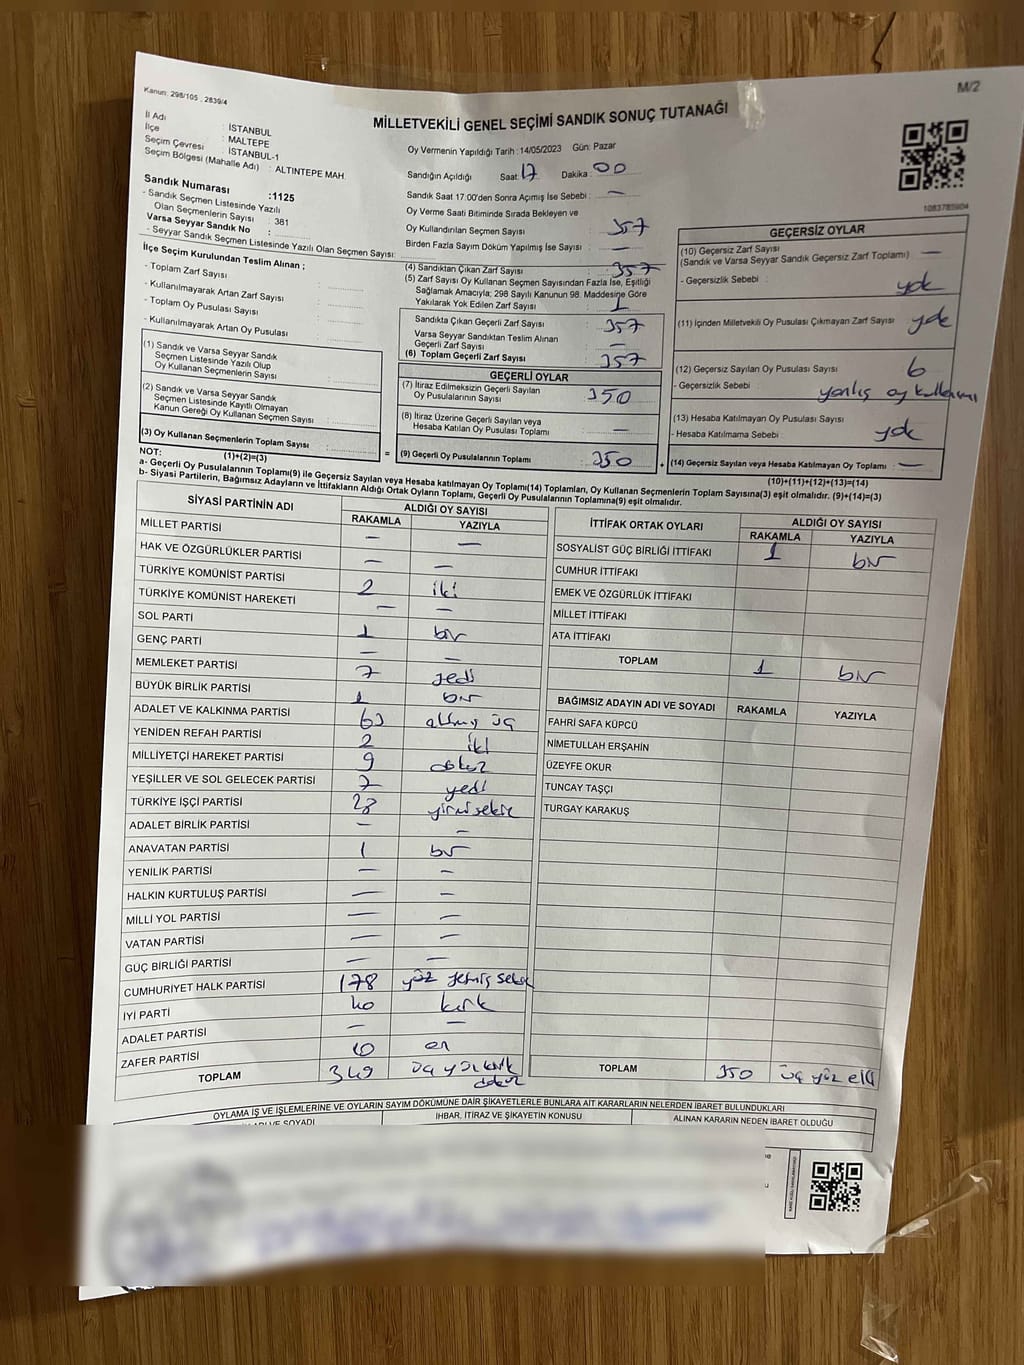 M/2
Kanun: 298/105 , 2839/4
MİLLETVEKİLİ GENEL SEÇİMİ SANDIK SONUÇ TUTANAĞI
İl Adı : İSTANBUL
İlçe : MALTEPE
Seçim Çevresi : İSTANBUL-1
Seçim Bölgesi (Mahalle Adı) : ALTINTEPE MAH.
Sandık Numarası :1125
- Sandık Seçmen Listesinde Yazılı
Olan Seçmenlerin Sayısı : 381
Varsa Seyyar Sandık No :
- Seyyar Sandık Seçmen Listesinde Yazılı Olan Seçmen Sayısı:
İlçe Seçim Kurulundan Teslim Alınan ;
- Toplam Zarf Sayısı :
- Kullanılmayarak Artan Zarf Sayısı :
- Toplam Oy Pusulası Sayısı :
- Kullanılmayarak Artan Oy Pusulası :
(1) Sandık ve Varsa Seyyar Sandık
Seçmen Listesinde Yazılı Olup
Oy Kullanan Seçmenlerin Sayısı :
(2) Sandık ve Varsa Seyyar Sandık
Seçmen Listesinde Kayıtlı Olmayan
Kanun Gereği Oy Kullanan Seçmen Sayısı :
(3) Oy Kullanan Seçmenlerin Toplam Sayısı :
(1)+(2)=(3)
Oy Vermenin Yapıldığı Tarih : 14/05/2023 Gün: Pazar
Sandığın Açıldığı Saat: 17 Dakika: 00
Sandık Saat 17.00'den Sonra Açımış İse Sebebi : —
Oy Verme Saati Bitiminde Sırada Bekleyen ve
Oy Kullandırılan Seçmen Sayısı : 357
Birden Fazla Sayım Döküm Yapılmış İse Sayısı : —
(4) Sandıktan Çıkan Zarf Sayısı : 357
(5) Zarf Sayısı Oy Kullanan Seçmen Sayısından Fazla İse, Eşitliği
Sağlamak Amacıyla; 298 Sayılı Kanunun 98. Maddesine Göre
Yakılarak Yok Edilen Zarf Sayısı : 1
Sandıkta Çıkan Geçerli Zarf Sayısı : 357
Varsa Seyyar Sandıktan Teslim Alınan
Geçerli Zarf Sayısı : —
(6) Toplam Geçerli Zarf Sayısı : 357
GEÇERLİ OYLAR
(7) İtiraz Edilmeksizin Geçerli Sayılan
Oy Pusulalarının Sayısı : 350
(8) İtiraz Üzerine Geçerli Sayılan veya
Hesaba Katılan Oy Pusulası Toplamı : —
= (9) Geçerli Oy Pusulalarının Toplamı : 350 +
1083785904
GEÇERSİZ OYLAR
(10) Geçersiz Zarf Sayısı : —
(Sandık ve Varsa Seyyar Sandık Geçersiz Zarf Toplamı)
- Geçersizlik Sebebi : yok
(11) İçinden Milletvekili Oy Pusulası Çıkmayan Zarf Sayısı : yok
(12) Geçersiz Sayılan Oy Pusulası Sayısı : 6
- Geçersizlik Sebebi : yanlış oy kullanımı
(13) Hesaba Katılmayan Oy Pusulası Sayısı :
- Hesaba Katılmama Sebebi : yok
(14) Geçersiz Sayılan veya Hesaba Katılmayan Oy Toplamı : —
(10)+(11)+(12)+(13)=(14)
NOT:
a- Geçerli Oy Pusulalarının Toplamı(9) ile Geçersiz Sayılan veya Hesaba katılmayan Oy Toplamı(14) Toplamları, Oy Kullanan Seçmenlerin Toplam Sayısına(3) eşit olmalıdır. (9)+(14)=(3)
b- Siyasi Partilerin, Bağımsız Adayların ve İttifakların Aldığı Ortak Oyların Toplamı, Geçerli Oy Pusulalarının Toplamına(9) eşit olmalıdır.
SİYASİ PARTİNİN ADI ALDIĞI OY SAYISI
RAKAMLA YAZIYLA
MİLLET PARTİSİ — —
HAK VE ÖZGÜRLÜKLER PARTİSİ — —
TÜRKİYE KOMÜNİST PARTİSİ 2 iki
TÜRKİYE KOMÜNİST HAREKETİ — —
SOL PARTİ 1 bir
GENÇ PARTİ — —
MEMLEKET PARTİSİ 7 yedi
BÜYÜK BİRLİK PARTİSİ 1 bir
ADALET VE KALKINMA PARTİSİ 63 altmış üç
YENİDEN REFAH PARTİSİ 2 iki
MİLLİYETÇİ HAREKET PARTİSİ 9 dokuz
YEŞİLLER VE SOL GELECEK PARTİSİ 7 yedi
TÜRKİYE İŞÇİ PARTİSİ 28 yirmi sekiz
ADALET BİRLİK PARTİSİ — —
ANAVATAN PARTİSİ 1 bir
YENİLİK PARTİSİ — —
HALKIN KURTULUŞ PARTİSİ — —
MİLLİ YOL PARTİSİ — —
VATAN PARTİSİ — —
GÜÇ BİRLİĞİ PARTİSİ — —
CUMHURİYET HALK PARTİSİ 178 yüz yetmiş sekiz
İYİ PARTİ 40 kırk
ADALET PARTİSİ — —
ZAFER PARTİSİ 10 on
TOPLAM 349 üç yüz kırk
dokuz
İTTİFAK ORTAK OYLARI ALDIĞI OY SAYISI
RAKAMLA YAZIYLA
SOSYALİST GÜÇ BİRLİĞİ İTTİFAKI 1 bir
CUMHUR İTTİFAKI
EMEK VE ÖZGÜRLÜK İTTİFAKI
MİLLET İTTİFAKI
ATA İTTİFAKI
TOPLAM 1 bir
BAĞIMSIZ ADAYIN ADI VE SOYADI RAKAMLA YAZIYLA
FAHRİ SAFA KÜPCÜ
NİMETULLAH ERŞAHİN
ÜZEYFE OKUR
TUNCAY TAŞÇI
TURGAY KARAKUŞ
TOPLAM 350 üç yüz elli
OYLAMA İŞ VE İŞLEMLERİNE VE OYLARIN SAYIM DÖKÜMÜNE DAİR ŞİKAYETLERLE BUNLARA AİT KARARLARIN NELERDEN İBARET BULUNDUKLARI
VE SOYADI İHBAR, İTİRAZ VE ŞİKAYETİN KONUSU ALINAN KARARIN NEDEN İBARET OLDUĞU